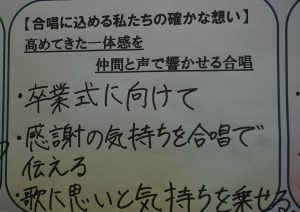 【合唱に込める私たちの確かな想い】
高めてきた一体感を
仲間と声で響かせる合唱
・卒業式に向けて
・感謝の気持ちを合唱で
伝える
・歌に思いと気持ちを乗せる